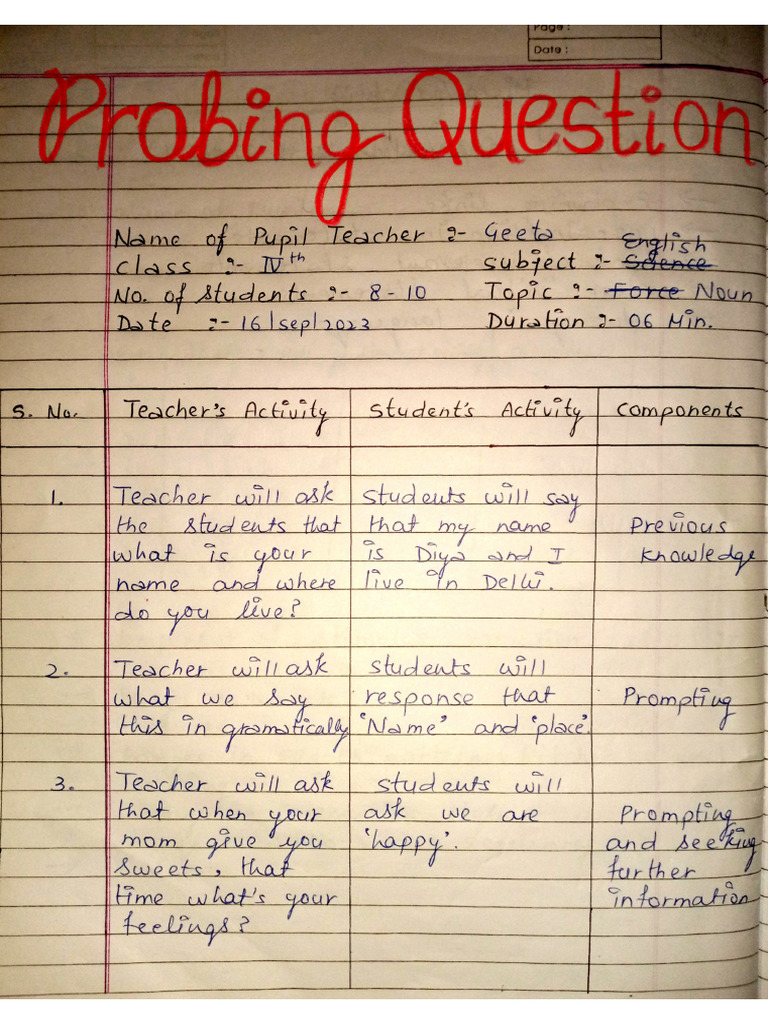 Page :
Date :
Probing Question
Name of Pupil Teacher :- Geeta
Class :- IVth
Subject :- Science English
No. of Students :- 8 - 10
Topic :- Force Noun
Date :- 16/sep/2023
Duration :- 06 Min.
S. No. Teacher's Activity Student's Activity Components
1. Teacher will ask
the students that
what is your
name and where
do you live?
Students will say
that my name
is Diya and I
live in Delhi.
Previous
Knowledge
2. Teacher will ask
what we say
this in gramatically
Students will
response that
'Name' and 'place'.
Prompting
3. Teacher will ask
that when your
mom give you
sweets, that
time what's your
feelings?
Students will
ask we are
'happy'.
Prompting
and seeking
further
information